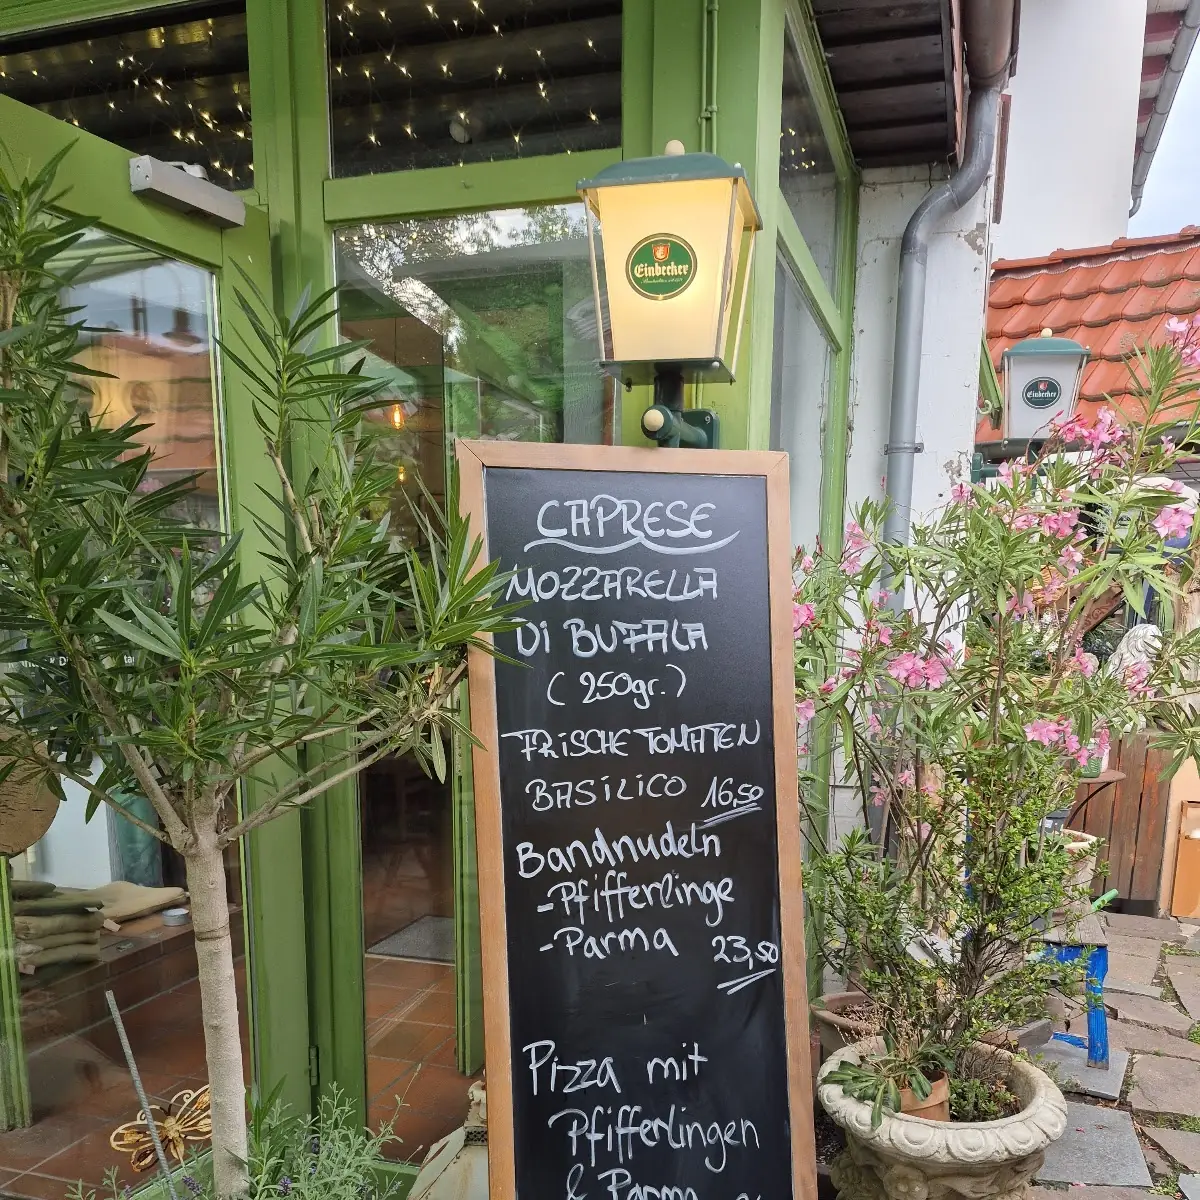 Einbecker
Einbecker
CAPRESE
MOZZARELLA
DI BUFALA
(250gr.)
FRISCHE TOMATEN
BASILICO 16,50
Bandnudeln
-Pfifferlinge
-Parma 23,50
Pizza mit
Pfifferlingen
& Parma